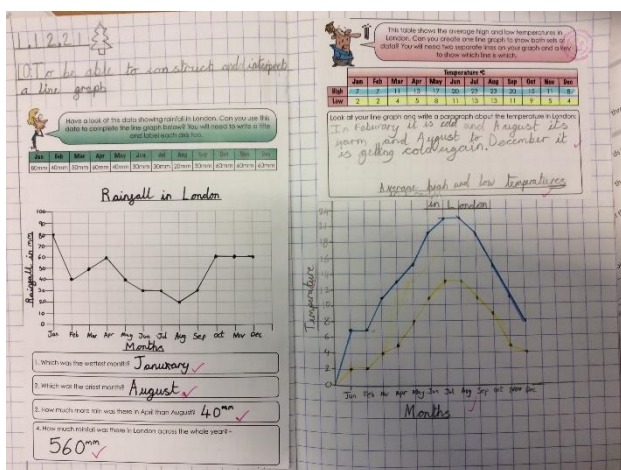 1.12.21
LO: To be able to construct and interpret
a line graph
Have a look at the data showing rainfall in London. Can you use this
data to complete the line graph below? You will need to write a title
and label each axis too.
Jan Feb Mar Apr May Jun Jul Aug Sep Oct Nov Dec
80mm 40mm 50mm 60mm 40mm 30mm 30mm 20mm 30mm 60mm 60mm 60mm
Rainfall in London
Rainfall in mm
100
90
80
70
60
50
40
30
20
10
0
Jan Feb Mar Apr May Jun Jul Aug Sep Oct Nov Dec
Months
1. Which was the wettest month? Janurary
2. Which was the driest month? August
3. How much more rain was there in April than August? 40mm
4. How much rainfall was there in London across the whole year?
560mm
This table shows the average high and low temperatures in
London. Can you create one line graph to show both sets of
data? You will need two separate lines on your graph and a key
to show which line is which.
Temperature °C
Jan Feb Mar Apr May Jun Jul Aug Sep Oct Nov Dec
High 7 7 11 13 17 20 23 23 20 15 11 8
Low 2 2 4 5 8 11 13 13 11 9 5 4
Look at your line graph and write a paragraph about the temperature in London.
In Feburary it is cold and August its
warm and August to December it
is getting cold again.
Average high and low temperatures
in London
Temperature
24
8
6
4
2
0
Jan Feb Mar Apr May Jun Jul Aug Sep Oct Nov Dec
Months